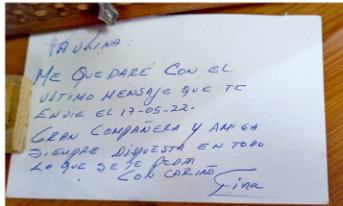 PAULINA:
ME QUEDARÉ CON EL
ULTIMO MENSAJE QUE TE
ENVIE EL 17-05-22.
GRAN COMPAÑERA Y AMIGA
SIEMPRE DISPUESTA EN TODO
LO QUE SE TE PEDIA
CON CARIÑO
Gina